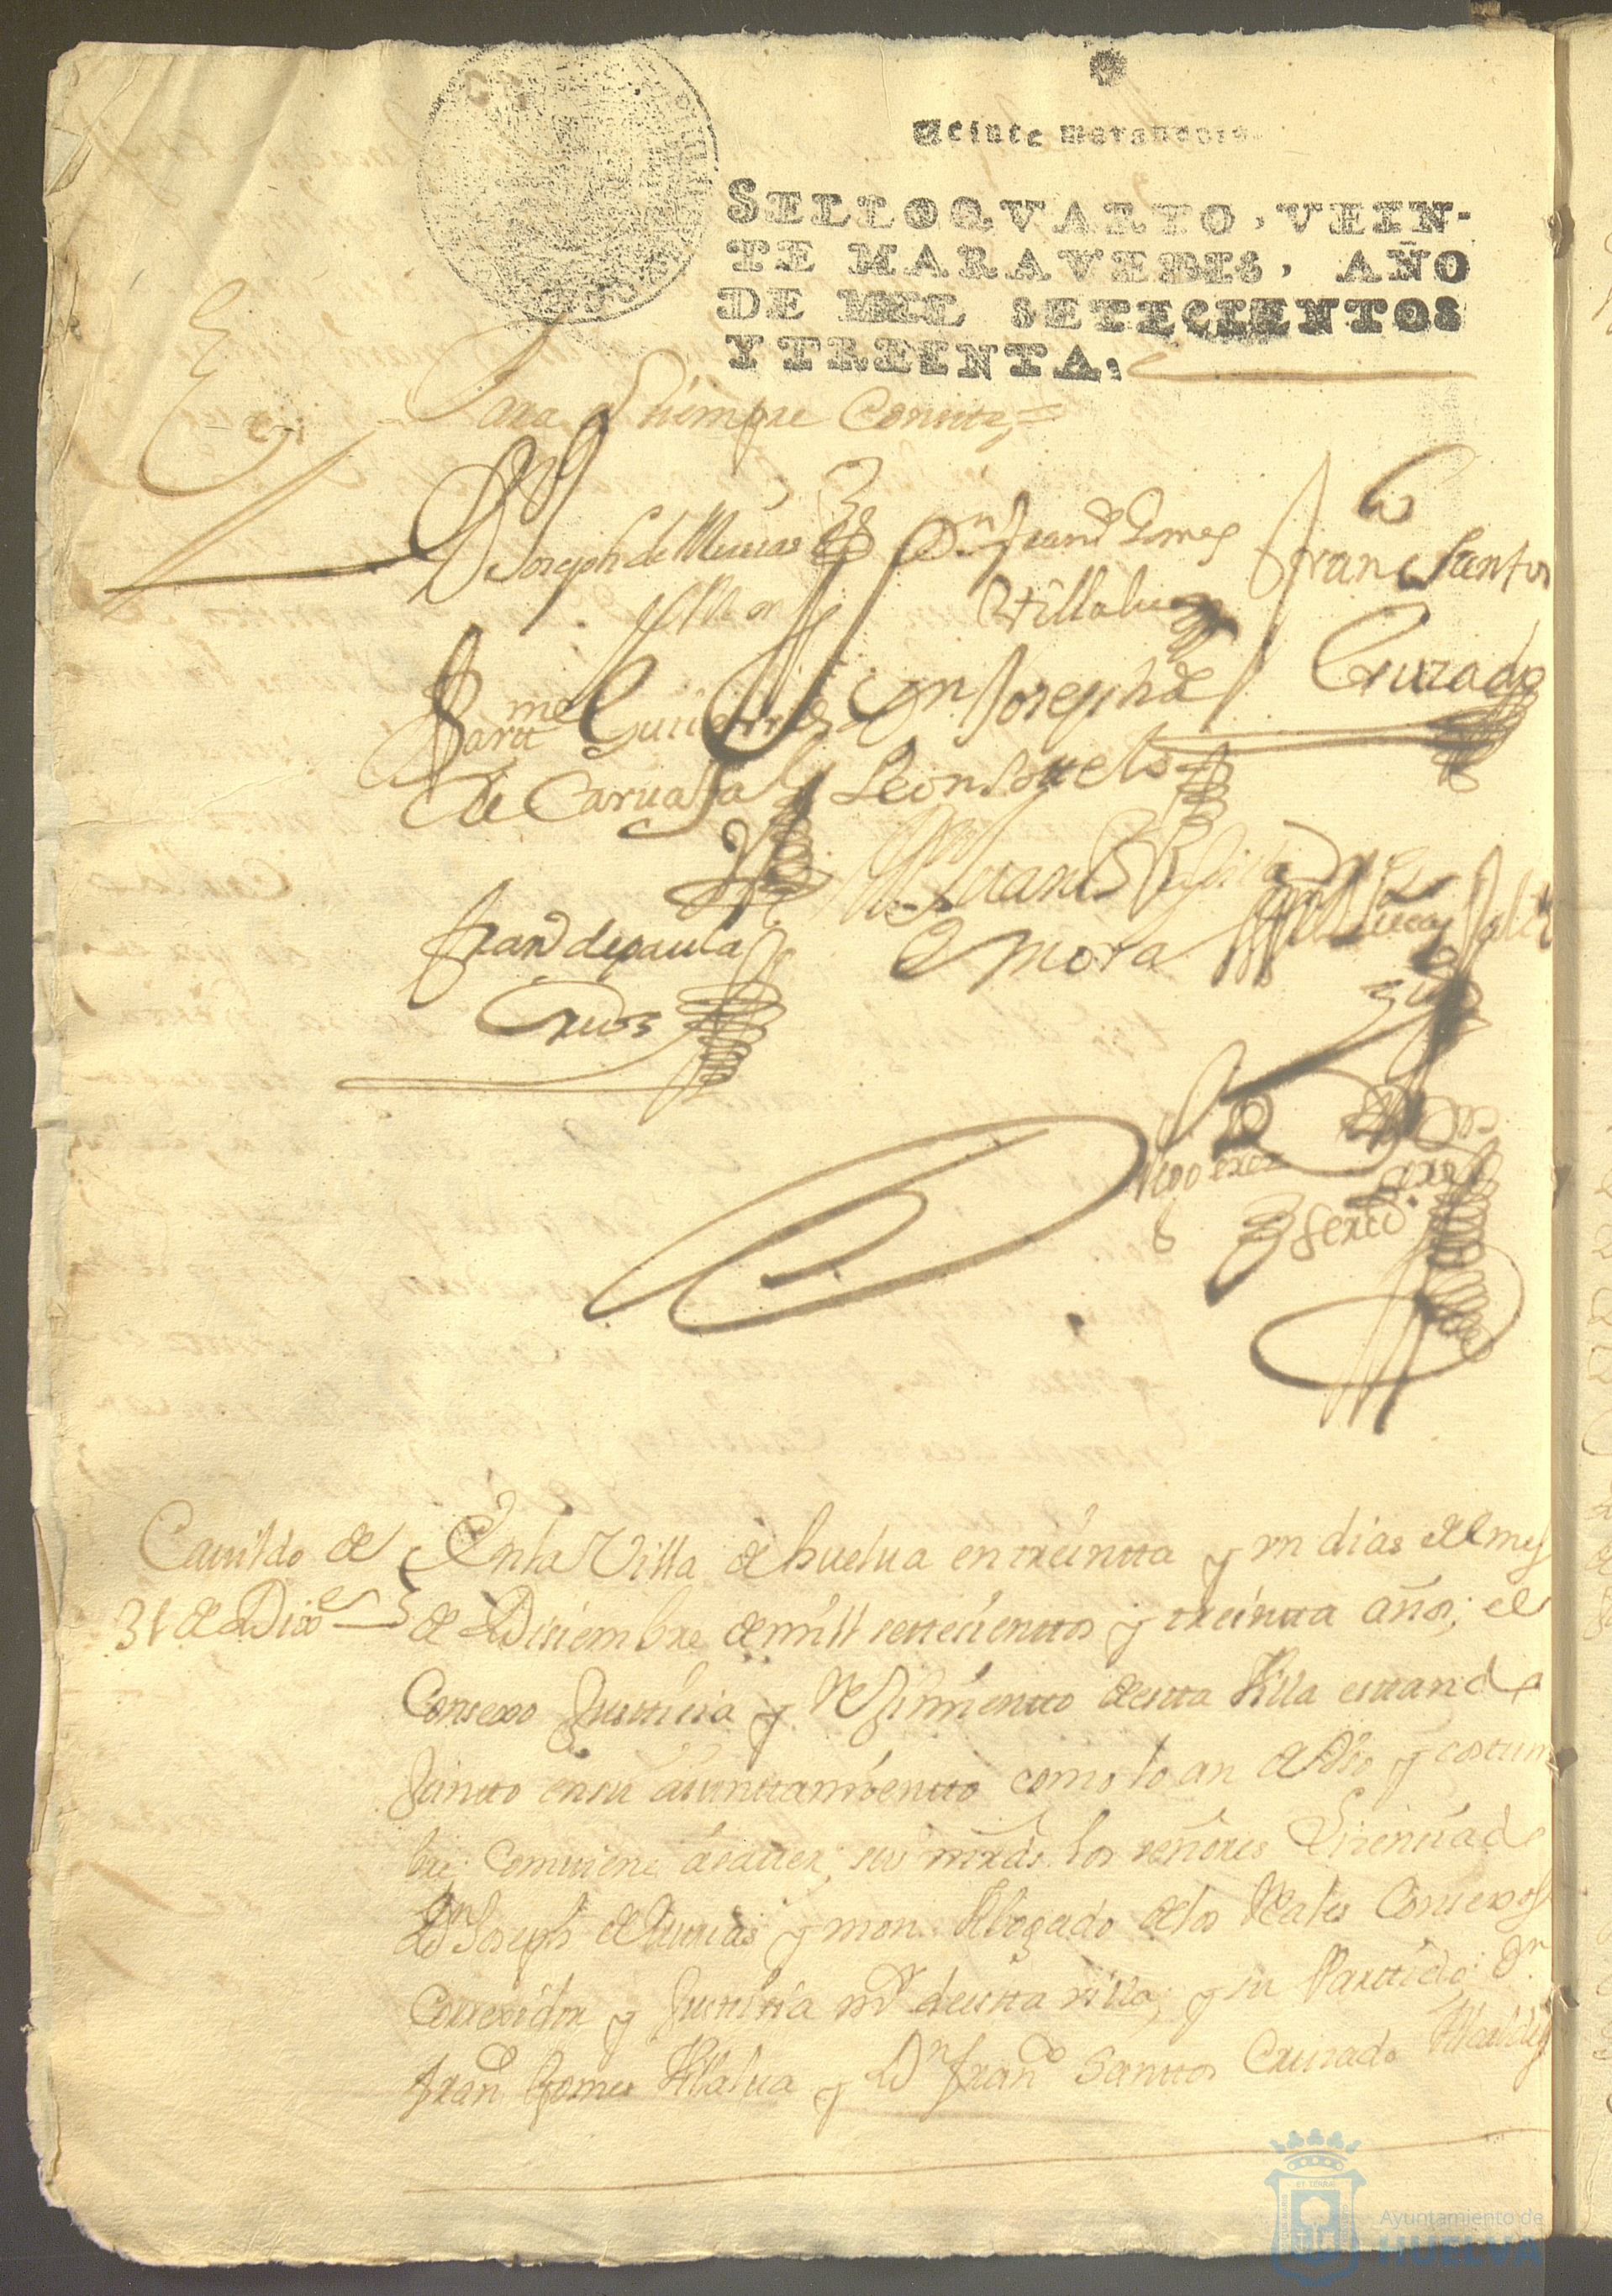 Veinte maravedis.
SELLO QVARTO, VEIN-
TE MARAVEDIS, AÑO
DE MIL SETECIENTOS
Y TREINTA.
Para q siempre Conste =
Dn Joseph de Murias
y Mon
Dn Frand Gomes
Villalua
Franco Santos
Cruzado
Barme Gutierres
de Caruajal
Dn Joseph de
Leon Sotelo
Juan
Mora
Frand de paula
Cruz
Cauildo de
31 de Dixe
En la Villa de huelua en treintta y un dias del mes
de Disiembre de mill settesienttos y treintta años; el
Consexo Justtisia y Rejimientto destta Villa esttando
Juntto en su aiunttamientto como lo an de Vso y costum
bre combiene a sauer, sus mrds. los señores Lisensiado
Dn Joseph de Murias y mon Abogado de los Reales Consexos
Correxidor y Justtisia mr destta villa, y su Parttido, Dn
Frando Gomes Villalua y Dn Frando Santtos Crusado Alcaldes
Ayuntamiento de
HUELVA